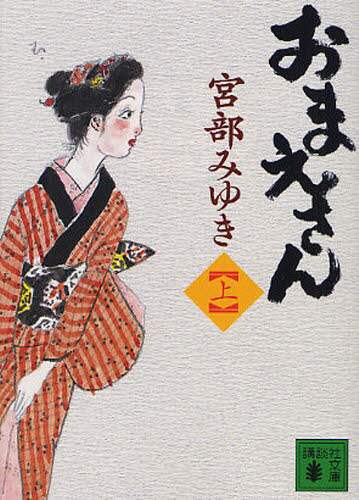 おまえさん
宮部みゆき
【上】
講談
社文
庫